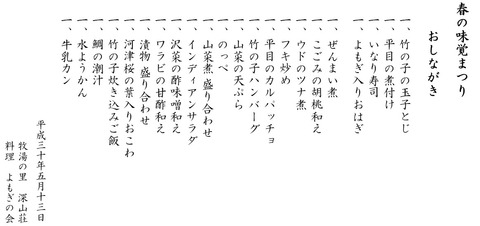 春の味覚まつり
おしながき
一、竹の子の玉子とじ
一、平目の煮付け
一、いなり寿司
一、よもぎ入りおはぎ
一、ぜんまい煮
一、こごみの胡桃和え
一、ウドのツナ煮
一、フキ炒め
一、平目のカルパッチョ
一、竹の子ハンバーグ
一、山菜の天ぷら
一、のっぺ
一、山菜煮 盛り合わせ
一、インディアンサラダ
一、沢菜の酢味噌和え
一、ワラビの甘酢和え
一、漬物 盛り合わせ
一、河津桜の葉入りおこわ
一、竹の子炊き込みご飯
一、鯛の潮汁
一、水ようかん
一、牛乳カン
平成三十年五月十三日
牧湯の里 深山荘
料理 よもぎの会